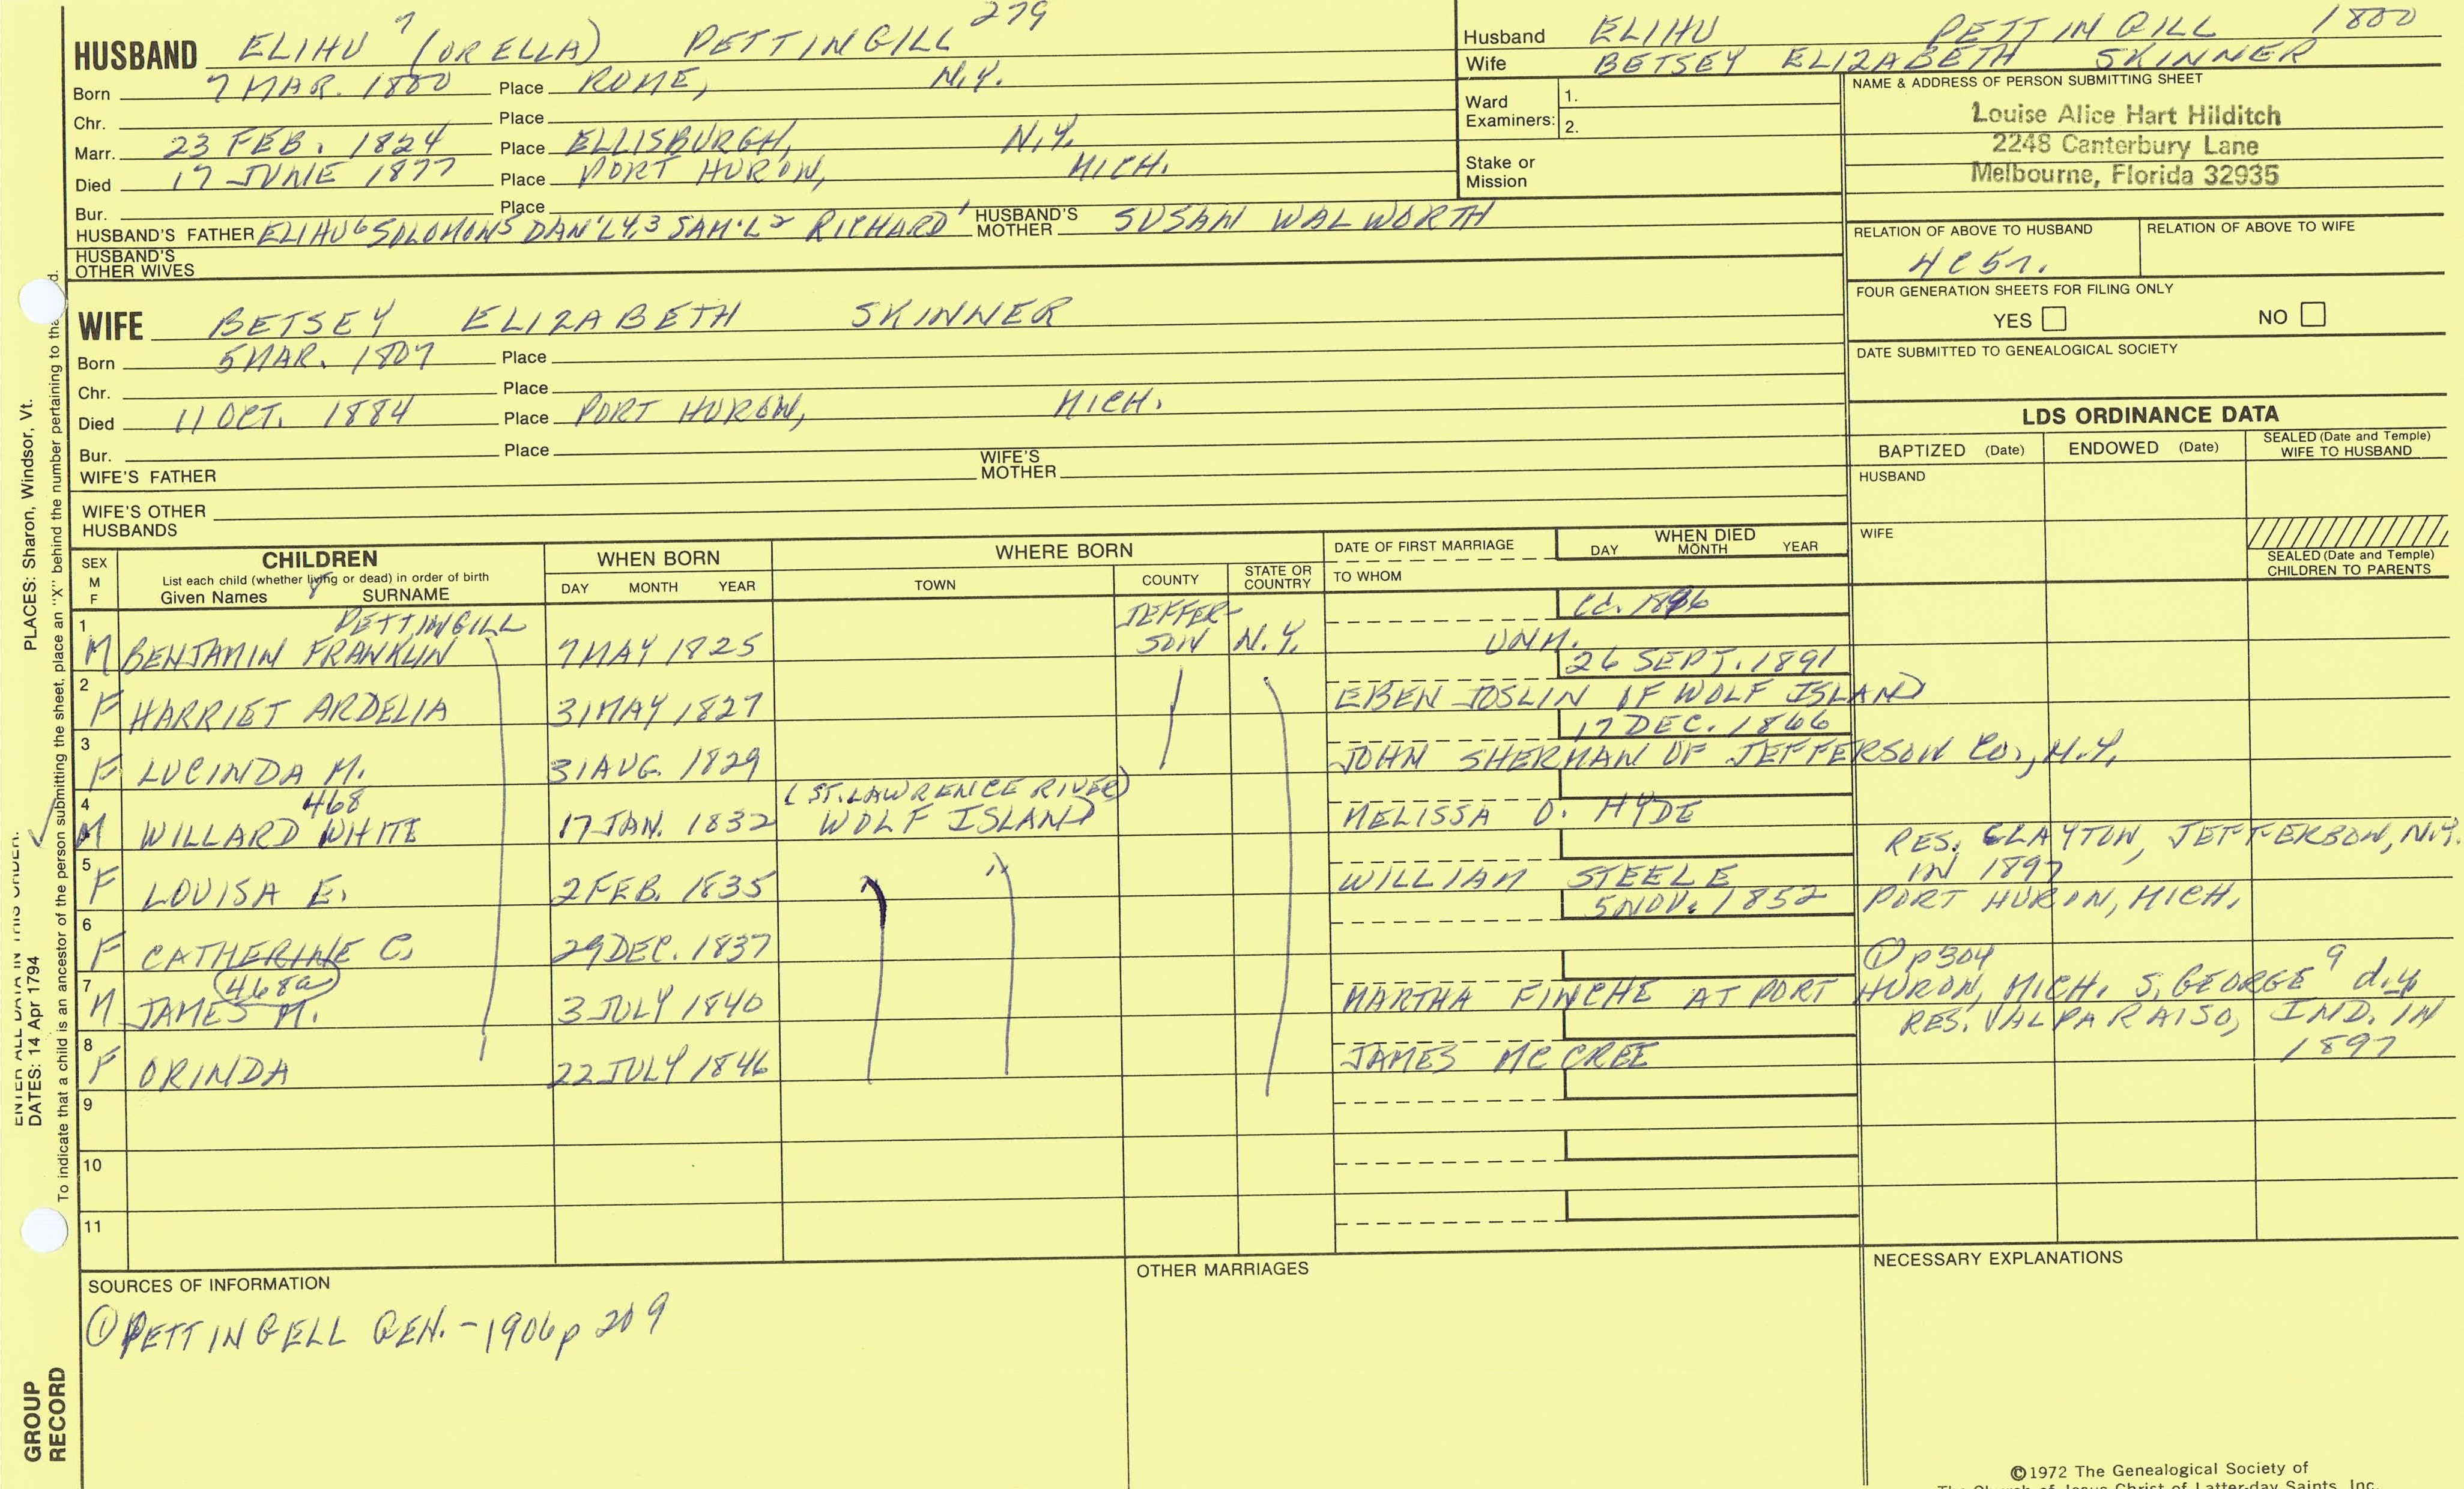 HUSBAND ELIHU 7 (OR ELLA) PETTINGILL 279
Born 7 MAR. 1800 Place ROME, N.Y.
Chr. Place
Marr. 23 FEB. 1824 Place ELLISBURGH, N.Y.
Died 17 JUNE 1877 Place PORT HURON, MICH.
Bur. Place
HUSBAND'S FATHER ELIHU6 SOLOMON5 DAN'L4,3 SAM'L2 RICHARD1 HUSBAND'S MOTHER SUSAN WALWORTH
HUSBAND'S OTHER WIVES
Husband ELIHU PETTINGILL 1800
Wife BETSEY ELIZABETH SKINNER
Ward Examiners: 1.
2.
Stake or Mission
NAME & ADDRESS OF PERSON SUBMITTING SHEET
Louise Alice Hart Hilditch
2248 Canterbury Lane
Melbourne, Florida 32935
RELATION OF ABOVE TO HUSBAND RELATION OF ABOVE TO WIFE
4C5r.
FOUR GENERATION SHEETS FOR FILING ONLY
YES NO
DATE SUBMITTED TO GENEALOGICAL SOCIETY
WIFE BETSEY ELIZABETH SKINNER
Born 5 MAR. 1807 Place
Chr. Place
Died 11 OCT. 1884 Place PORT HURON, MICH.
Bur. Place
WIFE'S FATHER WIFE'S MOTHER
WIFE'S OTHER HUSBANDS
LDS ORDINANCE DATA
BAPTIZED (Date) ENDOWED (Date) SEALED (Date and Temple) WIFE TO HUSBAND
HUSBAND
WIFE
SEALED (Date and Temple) CHILDREN TO PARENTS
SEX M F CHILDREN WHEN BORN WHERE BORN DATE OF FIRST MARRIAGE WHEN DIED
List each child (whether living or dead) in order of birth
Given Names SURNAME DAY MONTH YEAR TOWN COUNTY STATE OR COUNTRY TO WHOM DAY MONTH YEAR
1 PETTINGILL JEFFER-
M BENJAMIN FRANKLIN 7 MAY 1825 SON N.Y. UNM.
2 26 SEPT. 1891
F HARRIET ARDELIA 31 MAY 1827 EBEN JOSLIN OF WOLF ISLAND
3 17 DEC. 1866
F LUCINDA M. 31 AUG. 1829 JOHN SHERMAN OF JEFFERSON CO., N.Y.
4 468 (ST. LAWRENCE RIVER)
M WILLARD WHITE 17 JAN. 1832 WOLF ISLAND MELISSA O. HYDE
RES. CLAYTON, JEFFERSON, N.Y.
IN 1897
5
F LOUISA E. 2 FEB. 1835 " WILLIAM STEELE
PORT HURON, MICH.
6 5 NOV. 1852
F CATHERINE C. 29 DEC. 1837
① p304
7 468a
M JAMES M. 3 JULY 1840 MARTHA FINCHE AT PORT HURON, MICH. S. GEORGE9 d.y.
RES. VALPARAISO, IND. IN
1897
8
F ORINDA 22 JULY 1846 JAMES MCCREE
9
10
11
SOURCES OF INFORMATION
① PETTINGELL GEN. - 1906 p 209
OTHER MARRIAGES
NECESSARY EXPLANATIONS
©1972 The Genealogical Society of
The Church of Jesus Christ of Latter-day Saints, Inc.
PLACES: Sharon, Windsor, Vt.
To indicate that a child is an ancestor of the person submitting the sheet, place an "X" behind the number pertaining to
ENTER ALL DATA IN THIS ORDER:
DATES: 14 Apr 1794
GROUP
RECORD